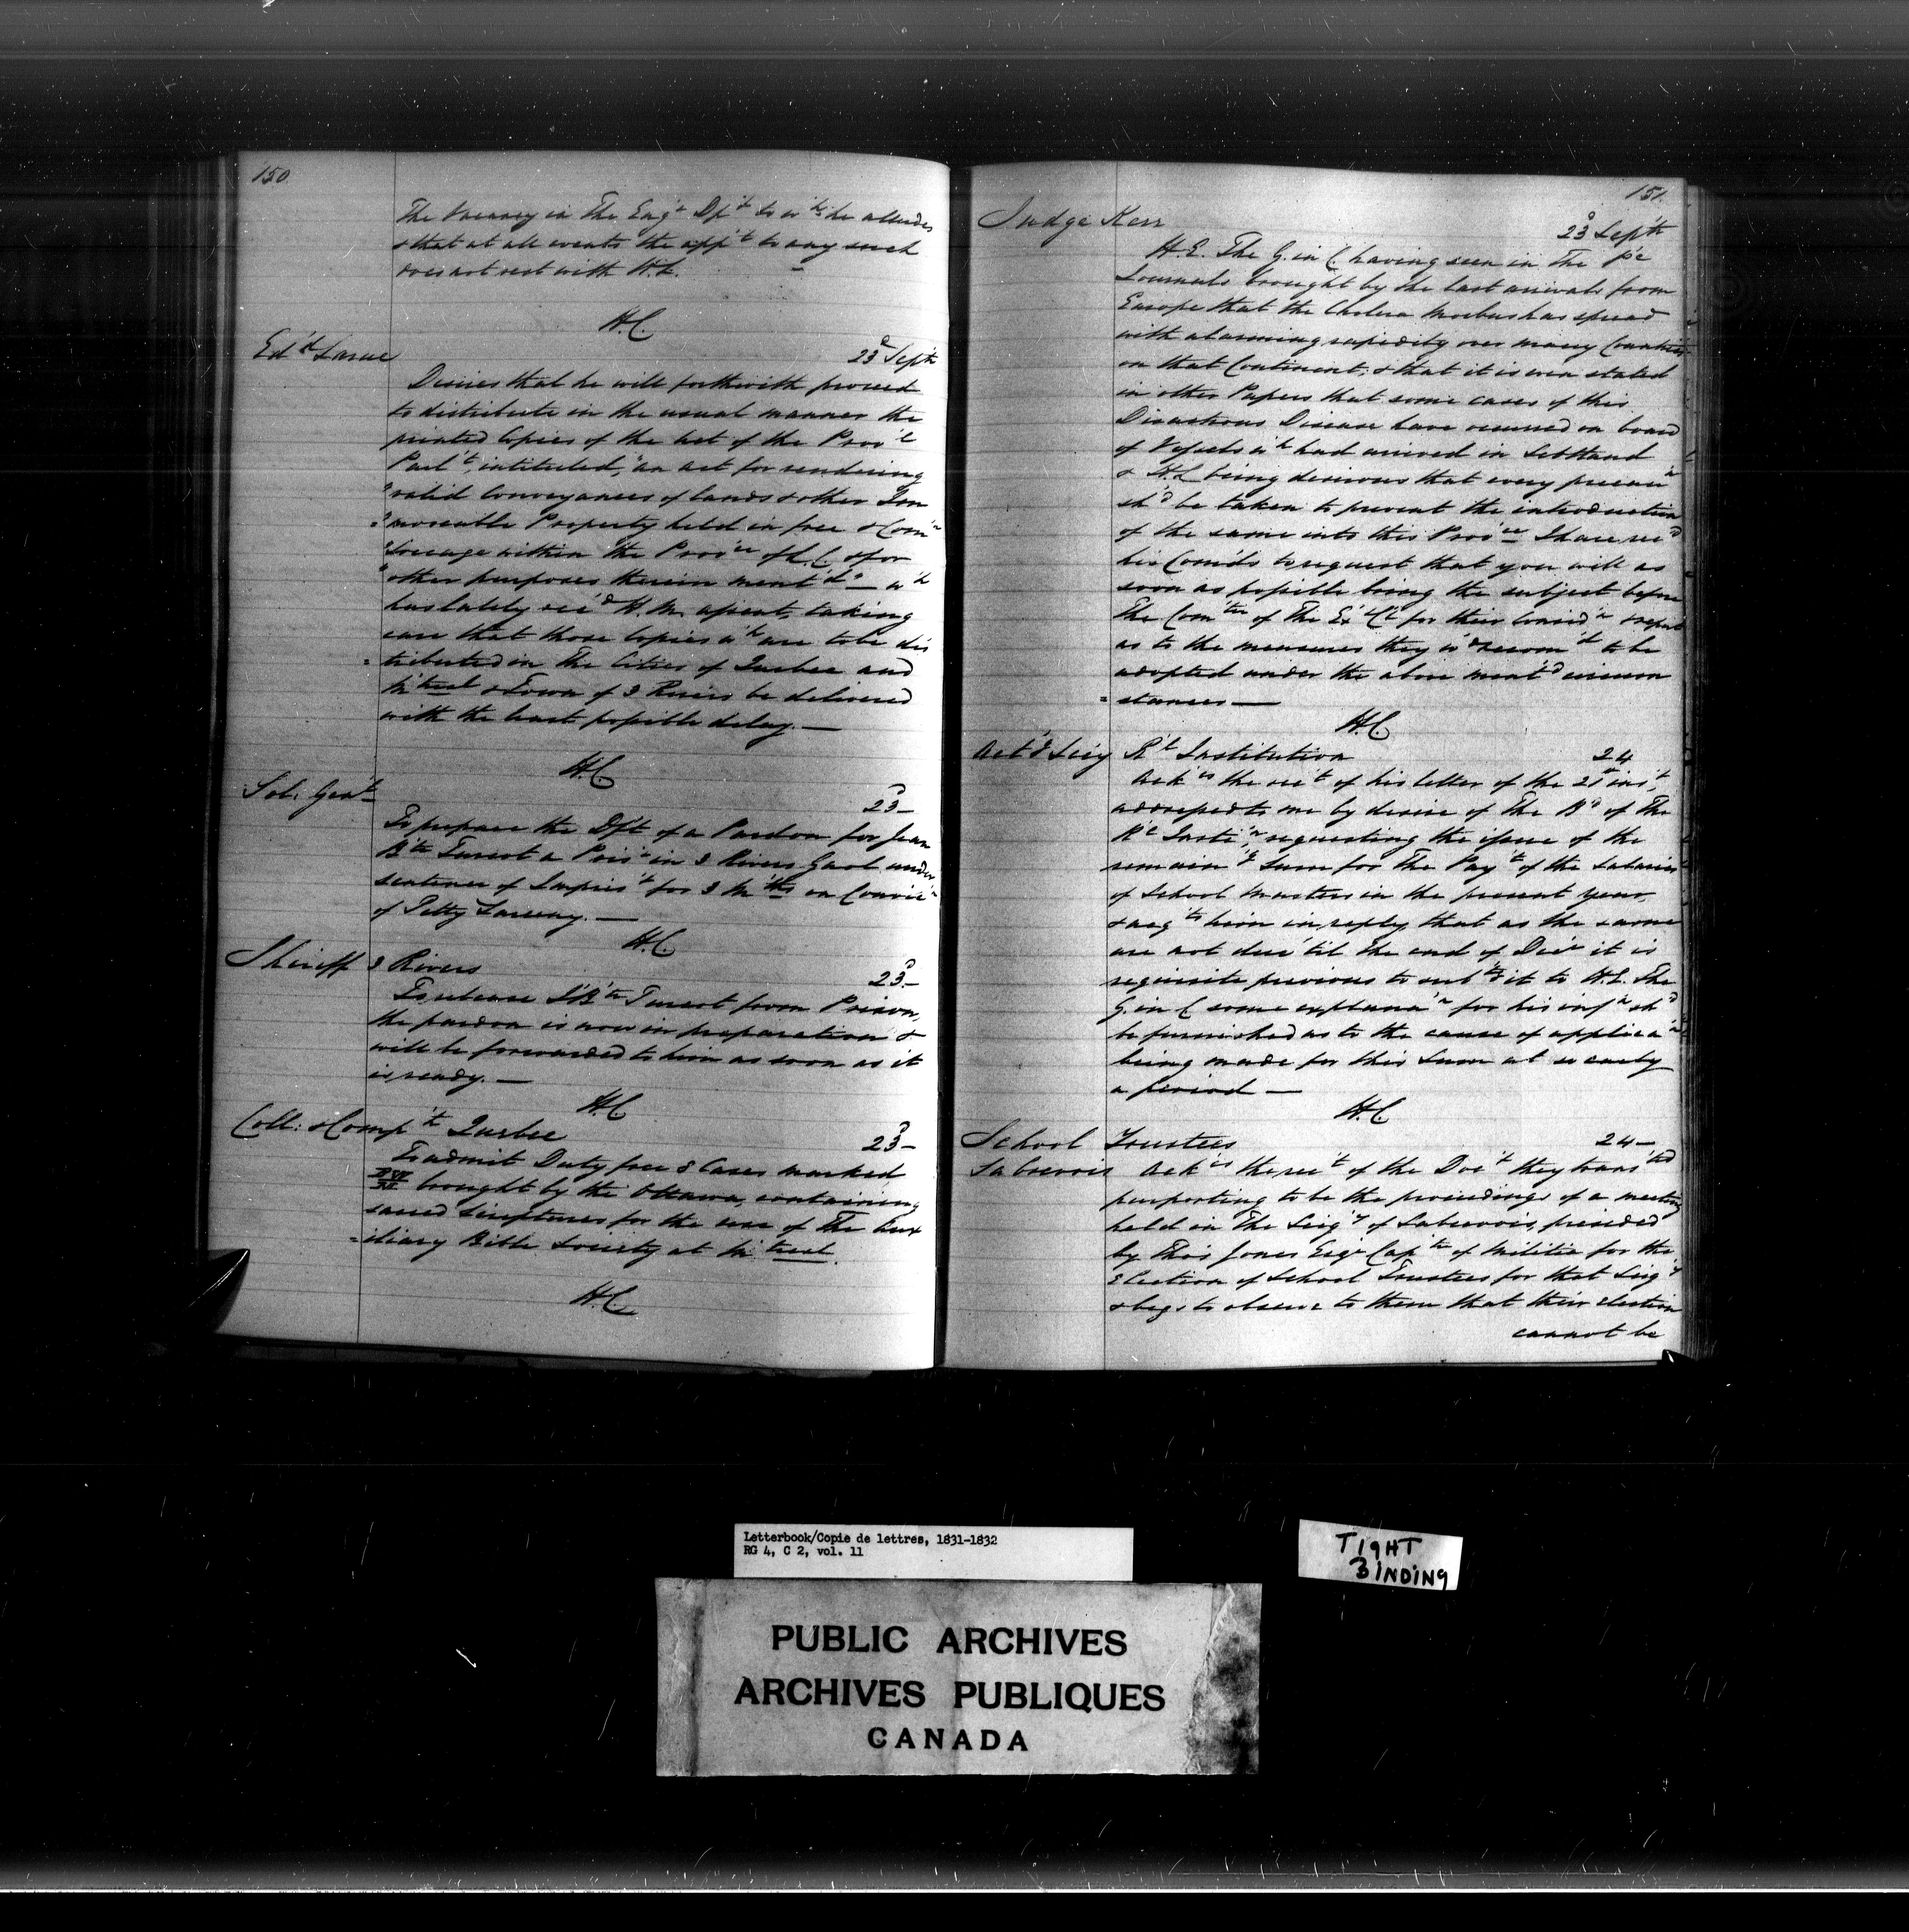 150
The Vacancy in The Eng'r Dp't to w'ch he alludes
& that at all events the app't to any such
does not rest with H.E.
H.C.
Ed'd Larue
23d Sept'r
Desires that he will forthwith proceed
to distribute in the usual manner the
printed Copies of the Act of the Prov'l
Parl't, intituled, "an act for rendering
"valid Conveyances of lands & other Im
"moveable Property held in free & Com'n
"Soccage within the Prov'ce of L.C. & for
"other purposes therein ment'd" — w'h
has lately rec'd H.M. assent, taking
care that those Copies w'h are to be dis
=tributed in The Cities of Quebec and
M'treal & Town of 3 Rivers be delivered
with the least possible delay. —
H.C.
Sol: Gen'l
23 —
To prepare the Df't of a Pardon for Jean
B'te Turcot a Pris'r in 3 Rivers Gaol under
sentence of Impris't for 3 M'ths on Convic'n
of Petty Larceny. —
H.C.
Sheriff 3 Rivers
23 —
To release J.B'te Turcot from Prison,
the pardon is now in preparation &
will be forwarded to him as soon as it
is ready. —
H.C.
Coll: & Comp't Quebec
23 —
To admit Duty free 8 Cases marked
brought by the Ottawa, containing
sacred Scriptures for the use of The Aux
=iliary Bible Society at M'treal.
H.C.
151
Judge Kerr
23 Sept'r
H.E. The G. in C. having seen in The p'c
Journals brought by the last arrivals from
Europe that the Cholera Morbus has spread
with alarming rapidity over many Countries
on that Continent; & that it is even stated
in other Papers that some cases of this
Disastrous Disease have occurred on board
of Vessels w'h had arrived in Scotland
& H.E. being desirous that every precau'n
sh'd be taken to prevent the introduction
of the same into this Prov'ce I have rec'd
his Com'ds to request that you will as
soon as possible bring the subject before
The Com'tee of The Ex' C'l for their consid'n & report
as to the measures they w'd recom'd to be
adopted under the above ment'd circum
=stances —
H.C.
Act'g Sec'y R'l Institution
24
Ack'es the rec't of his letter of the 21st ins't,
addressed to me by desire of The B'd of The
R'l Insti'n, requesting the issue of the
remain'g Sum for The Pay't of the Salaries
of School Masters in the present year,
& acq'ts him in reply, that as the same
are not due 'til the end of Dec'r it is
requisite previous to sub'g it to H.E. The
G. in C some explana'n for his inf'n sh'd
be furnished as to the cause of applica'n
being made for this Sum at so early
a period —
H.C.
School Trustees
24 —
Sabrevois Ack'es the rec't of the Doc't they trans'ted
purporting to be the proceedings of a meeting
held in The Seig'y of Sabrevois, presided
by Tho's Jones Esq'r Cap'tn of Militia for the
Election of School Trustees for that Seig'y
& begs to observe to them that their election
cannot be
Letterbook/Copie de lettres, 1831-1832
RG 4, C 2, vol. 11
TIGHT
BINDING
PUBLIC ARCHIVES
ARCHIVES PUBLIQUES
CANADA